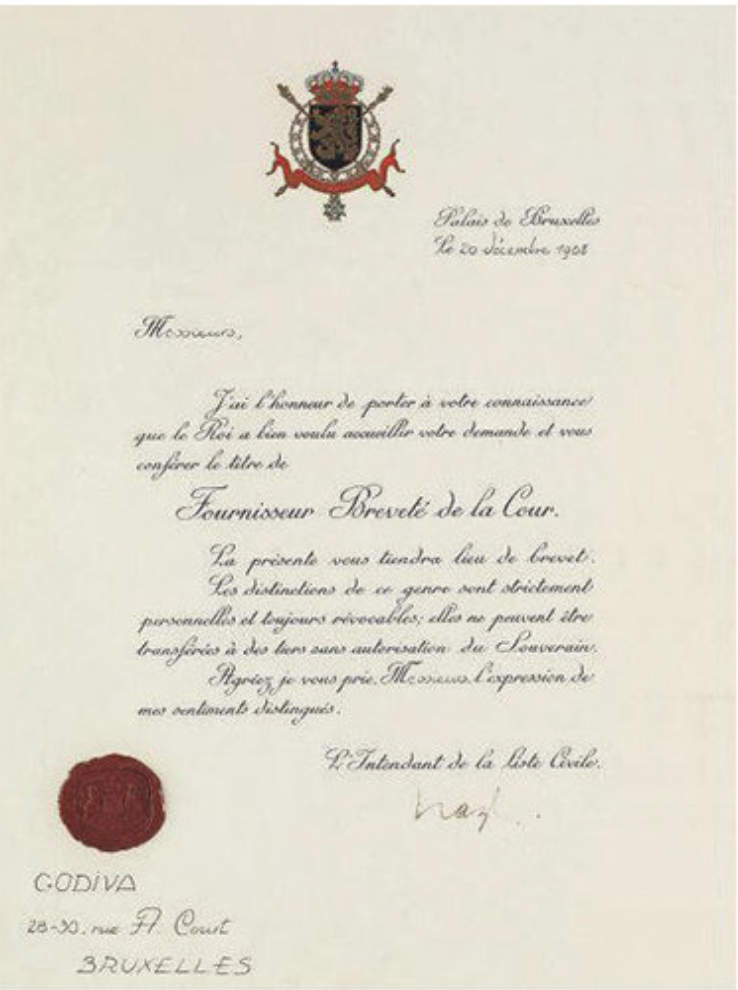 Palais de Bruxelles
Le 20 décembre 1968
Messieurs,
J'ai l'honneur de porter à votre connaissance
que le Roi a bien voulu accueillir votre demande et vous
conférer le titre de
Fournisseur Breveté de la Cour.
La présente vous tiendra lieu de brevet.
Les distinctions de ce genre sont strictement
personnelles et toujours révocables; elles ne peuvent être
transférées à des tiers sans autorisation du Souverain.
Agréez je vous prie, Messieurs, l'expression de
mes sentiments distingués.
L'Intendant de la Liste Civile.
GODIVA
28-30, rue A. Court
BRUXELLES